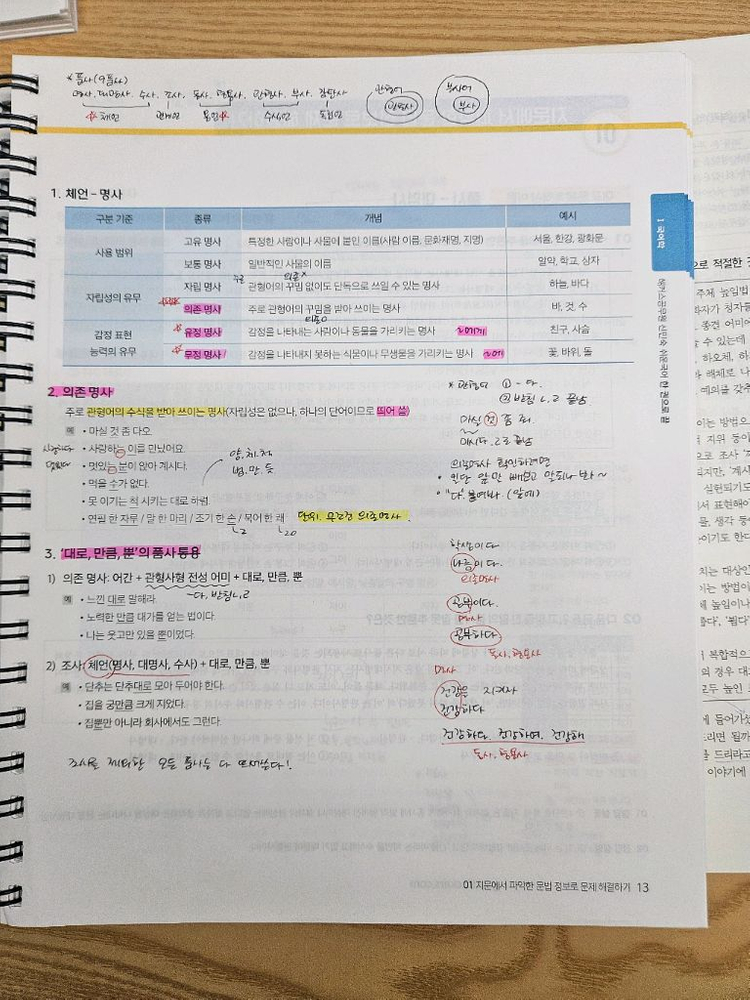 * 품사(9품사)
명사. 대명사. 수사. 조사. 동사. 형용사. 관형사. 부사. 감탄사
☆체언 관계언 용언☆ 수식언 독립언
관형어 관형사
부사어 부사
1. 체언 - 명사
구분 기준 종류 개념 예시
사용 범위
고유 명사 특정한 사람이나 사물에 붙인 이름(사람 이름, 문화재명, 지명) 서울, 한강, 광화문
보통 명사 일반적인 사물의 이름 일약, 학교, 상자
자립성의 유무
자립 명사 관형어의 꾸밈 없이도 단독으로 쓰일 수 있는 명사 하늘, 바다
의존 명사 주로 관형어의 꾸밈을 받아 쓰이는 명사 바, 것, 수
의존o
감정 표현 능력의 유무
유정 명사 감정을 나타내는 사람이나 동물을 가리키는 명사 ~에게 친구, 사슴
무정 명사 감정을 나타내지 못하는 식물이나 무생물을 가리키는 명사 ~에 꽃, 바위, 돌
Ⅰ 국어학
2. 의존 명사
주로 관형어의 수식을 받아 쓰이는 명사(자립성은 없으나, 하나의 단어이므로 띄어 씀)
예 • 마실 것 좀 다오.
• 사랑하는 이를 만났어요.
• 멋있는 분이 앉아 계시다.
• 먹을 수가 없다.
• 못 이기는 척 시키는 대로 하렴.
• 연필 한 자루 / 말 한 마리 / 조기 한 손 / 북어 한 쾌
단위. 무조건 의존명사.
↳2 ↳20
양, 치, 채
법, 만, 듯
* 관형어 ① ~다.
② 받침 ㄴ, ㄹ 끝남
마실 것 좀 줘.
마시다. ㄹ로 끝남
의존명사 확인하려면
• 일단 앞 말 빼보고 말되나 봐~
• "다" 붙여봐 (앞에)
3. '대로, 만큼, 뿐'의 품사 통용
1) 의존 명사: 어간 + 관형사형 전성 어미 + 대로, 만큼, 뿐
~다, 받침 ㄴ, ㄹ
예 • 느낀 대로 말해라.
• 노력한 만큼 대가를 얻는 법이다.
• 나는 웃고만 있을 뿐이었다.
2) 조사: 체언(명사, 대명사, 수사) + 대로, 만큼, 뿐
예 • 단추는 단추대로 모아 두어야 한다.
• 집을 궁만큼 크게 지었다.
• 집뿐만 아니라 회사에서도 그런다.
조사를 제외한 모든 품사는 다 띄어쓴다!
학생이다
나름이다.
의존명사
공부이다.
명사
공부하다
동사, 형용사
명사
건강을 지켜라
건강하다
건강하다. 건강하며. 건강해
동사, 형용사
01 지문에서 파악한 문법 정보로 문제 해결하기 13